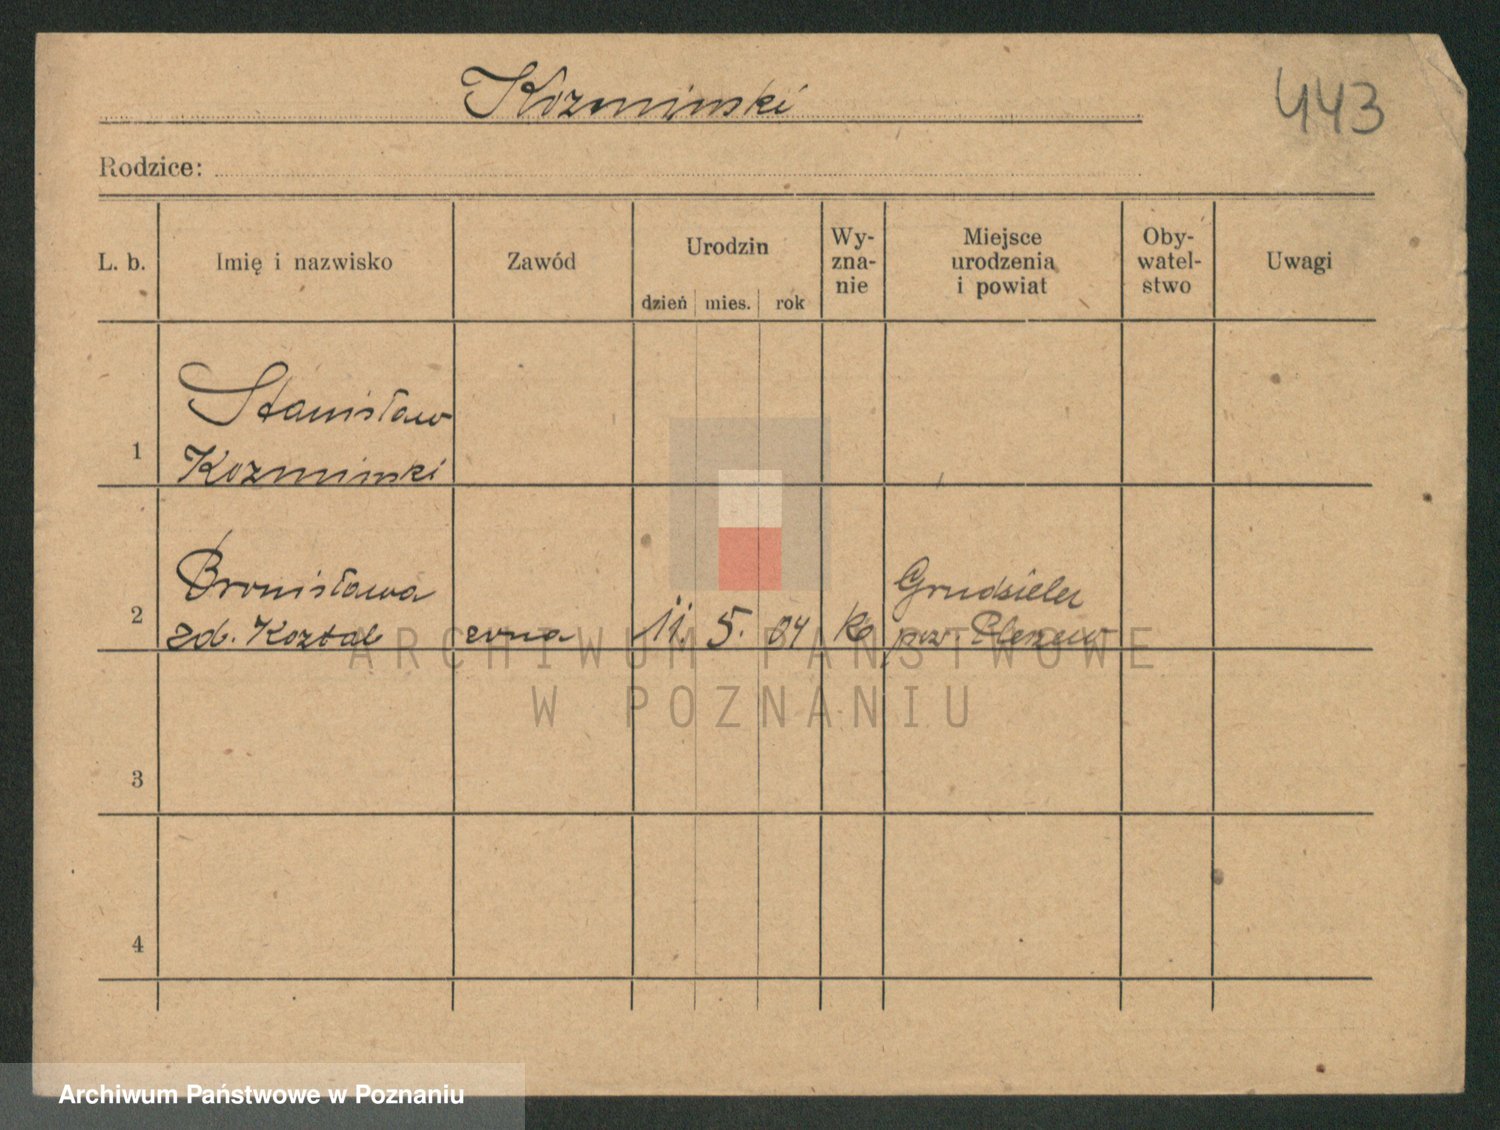 Kozminski
443
Rodzice:
L. b.
Imię i nazwisko
Zawód
Urodzin
dzień mies. rok
Wy-
zna-
nie
Miejsce
urodzenia
i powiat
Oby-
watel-
stwo
Uwagi
1
Stanisław
Kozminski
2
Bronisława
11. 5. 04
Grudzielec
pow. Pleszew
3
4
ARCHIWUM PAŃSTWOWE
W POZNANIU
Archiwum Państwowe w Poznaniu